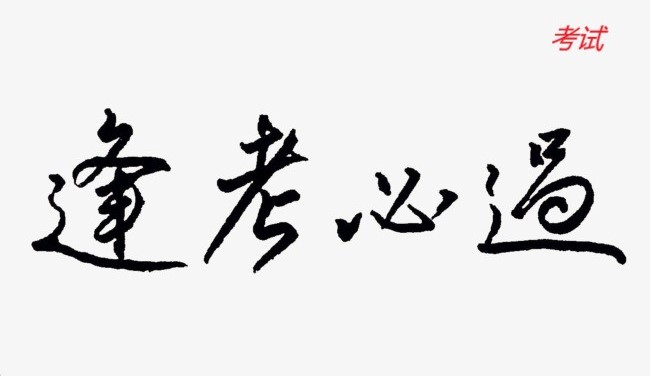 考试
逢考必過